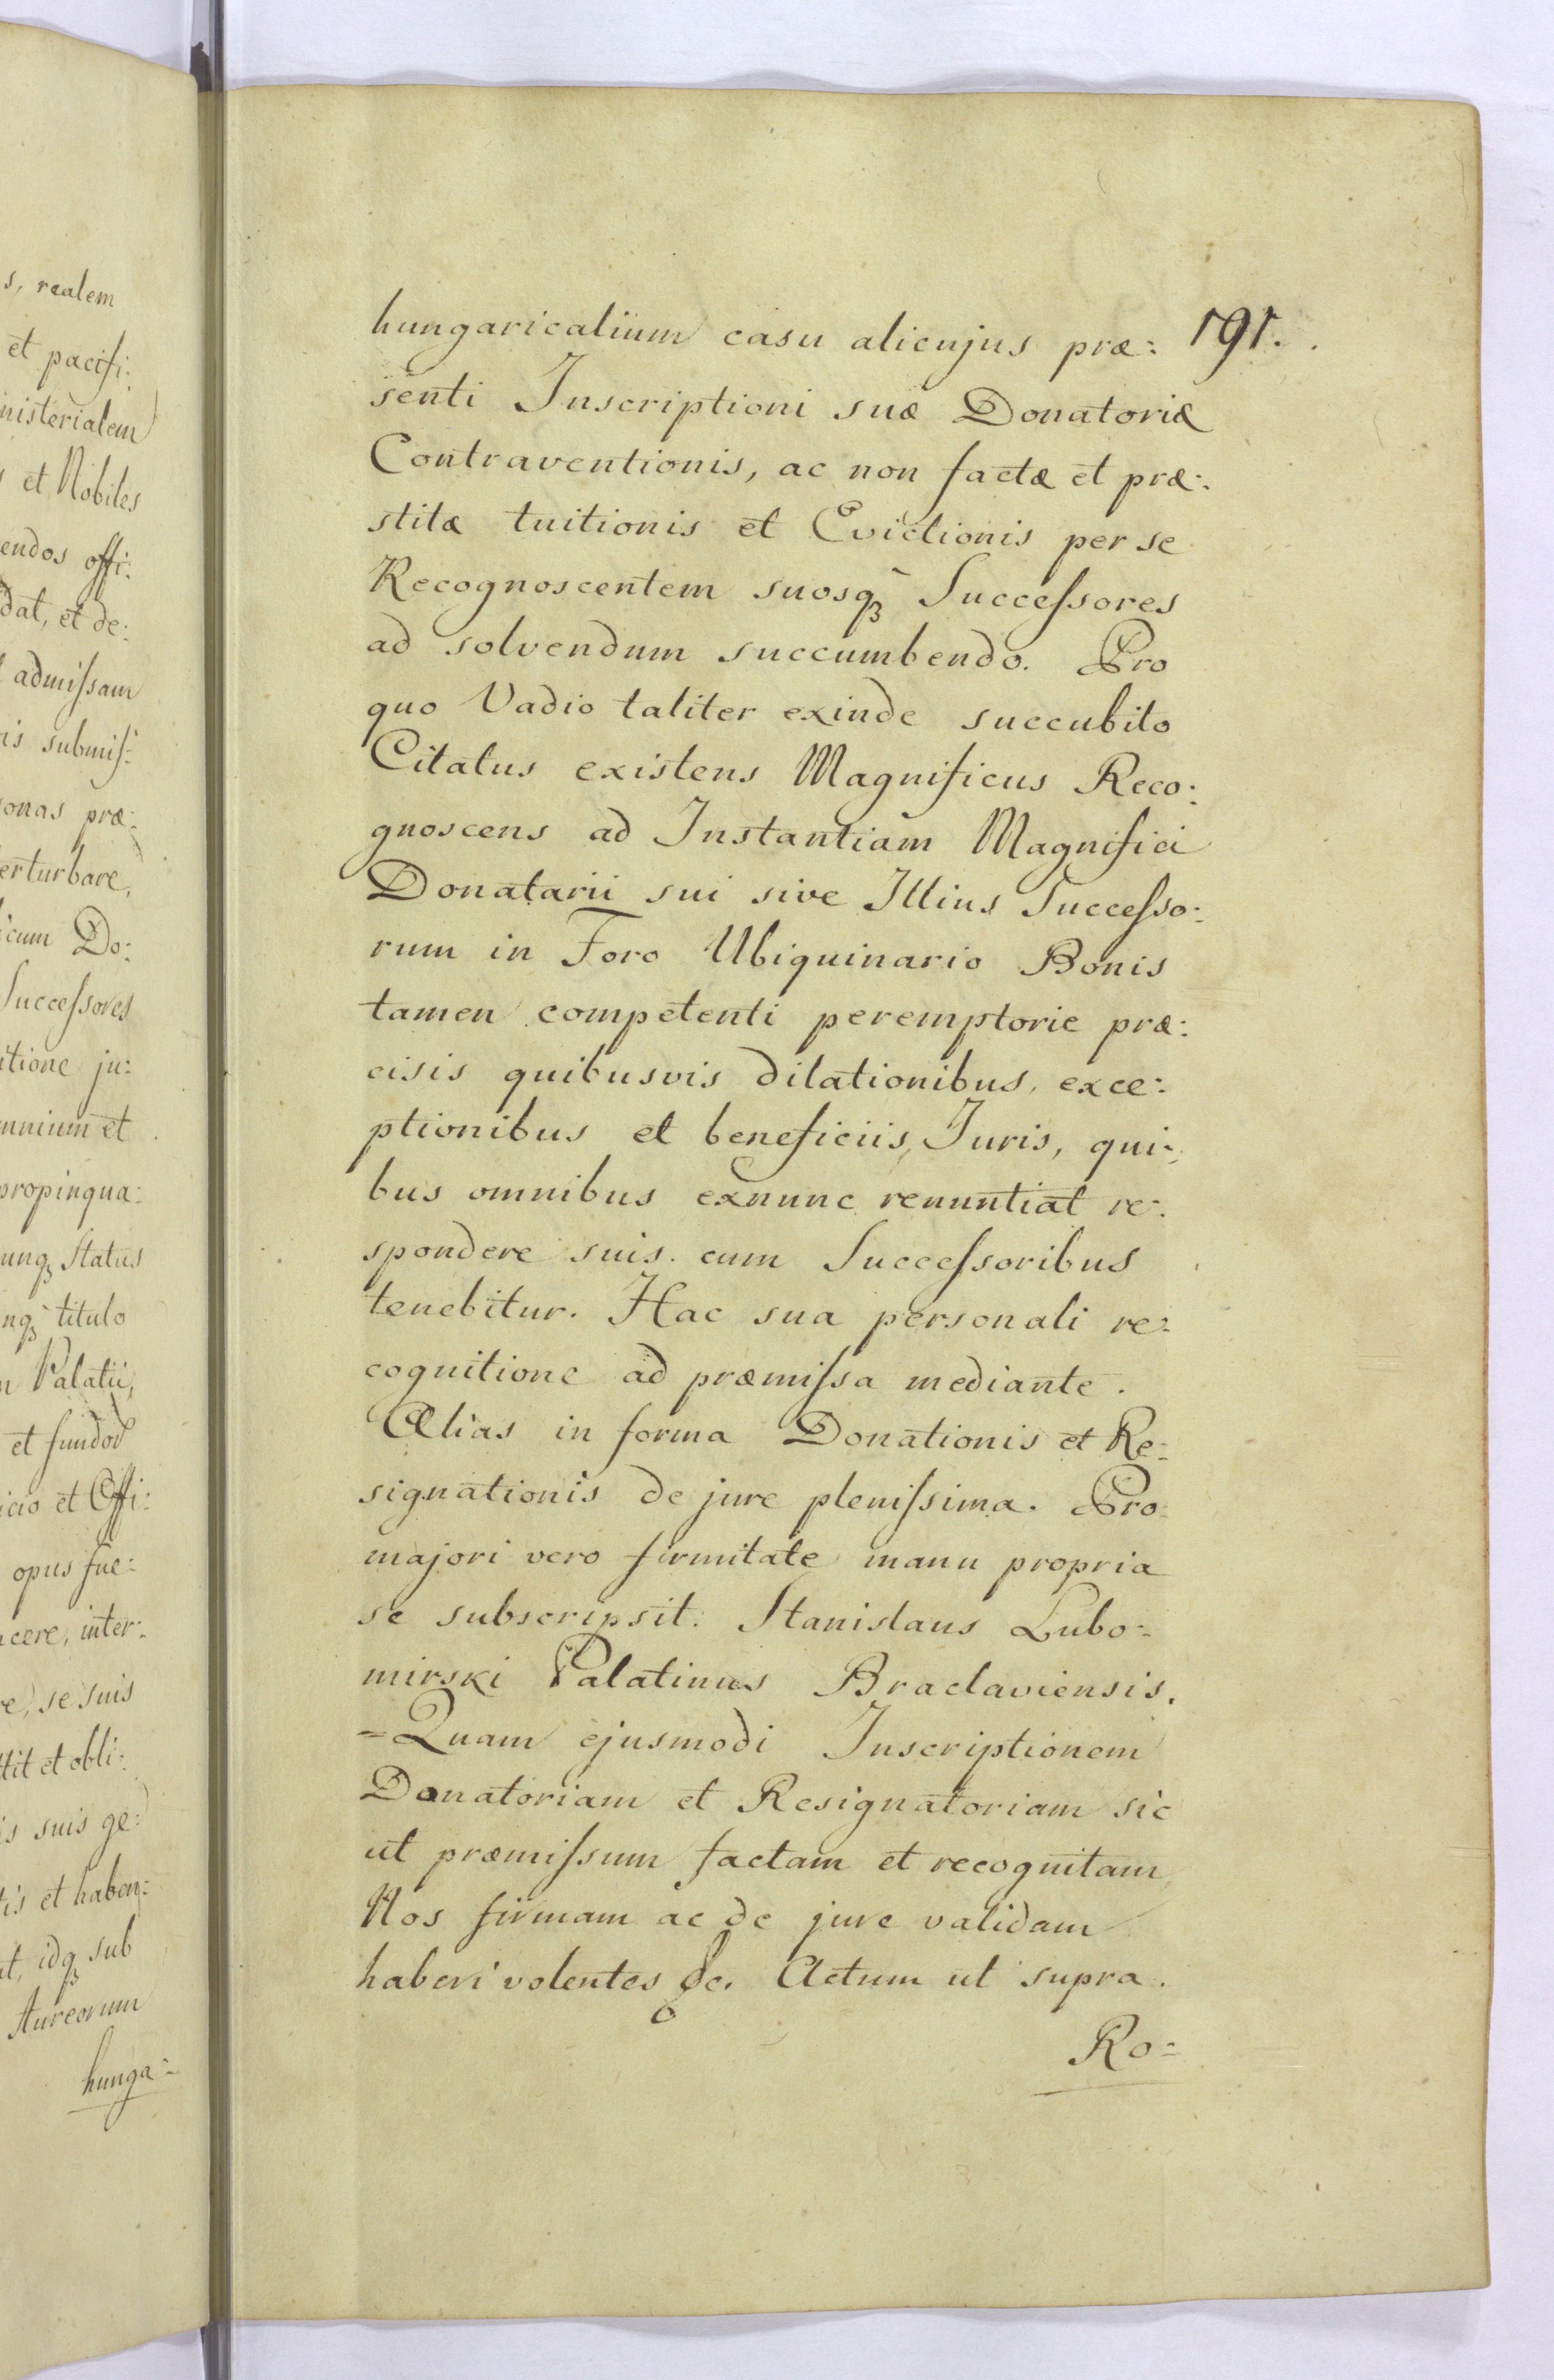 s, realem
et pacifi:
nisterialem
et Nobiles
endos offi:
dat, et de:
admissam
is submis:
onas præ:
erturbare,
icum Do:
Successores
itione ju:
mnium et
propinqua:
unq₃ Status
nq₃ titulo
n Palatii,
et fundos
icio et Offi:
opus fue:
cere, inter:
re, se suis
ttit et obli:
is suis ge:
tis et haben:
t, idq₃ sub
Aureorum
hunga:
hungaricalium casu alicujus præ: 191.
senti Inscriptioni suæ Donatoriæ
Contraventionis, ac non factæ et præ:
stitæ tuitionis et Evictionis per se
Recognoscentem suosq₃ Successores
ad solvendum succumbendo. Pro
quo Vadio taliter exinde succubito
Citatus existens Magnificus Reco:
gnoscens ad Instantiam Magnifici
Donatarii sui sive Illius Successo:
rum in Foro Ubiquinario Bonis
tamen competenti peremptorie præ:
cisis quibusvis dilationibus, exce:
ptionibus et beneficiis Juris, qui:
bus omnibus exnunc renuntiat re:
spondere suis cum Successoribus
tenebitur. Hac sua personali re:
cognitione ad præmissa mediante.
Alias in forma Donationis et Re:
signationis de jure plenissima. Pro
majori vero firmitate manu propria
se subscripsit. Stanislaus Lubo:
mirski Palatinus Braclaviensis.
=Quam ejusmodi Inscriptionem
Donatoriam et Resignatoriam sic
ut præmissum factam et recognitam
Nos firmam ac de jure validam
haberi volentes &c. Actum ut supra.
Ro: